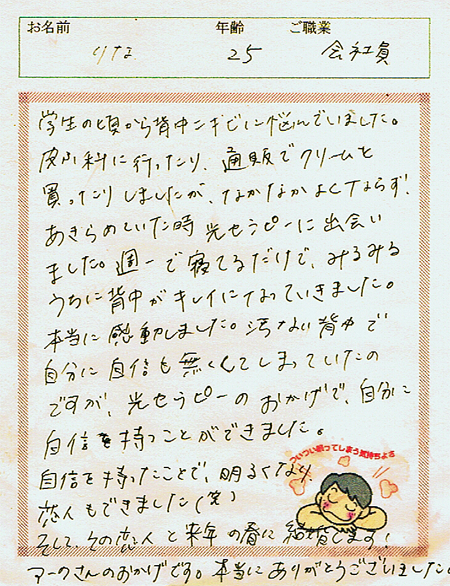 お名前 年齢 ご職業
りな 25 会社員
学生の頃から背中ニキビに悩んでいました。
皮ふ科に行ったり、通販でクリームを
買ったりしましたが、なかなかよくならず、
あきらめていた時 光セラピーに出会い
ました。週一で寝てるだけで、みるみる
うちに背中がキレイになっていきました。
本当に感動しました。汚ない背中で
自分に自信も無くしてしまっていたの
ですが、光セラピーのおかげで、自分に
自信を持つことができました。
ついつい眠ってしまう気持ちよさ
自信を持ったことで、明るくなり、
恋人もできました(笑)
そして、その恋人と来年の春に結婚できます!
アークさんのおかげです。本当にありがとうございました。